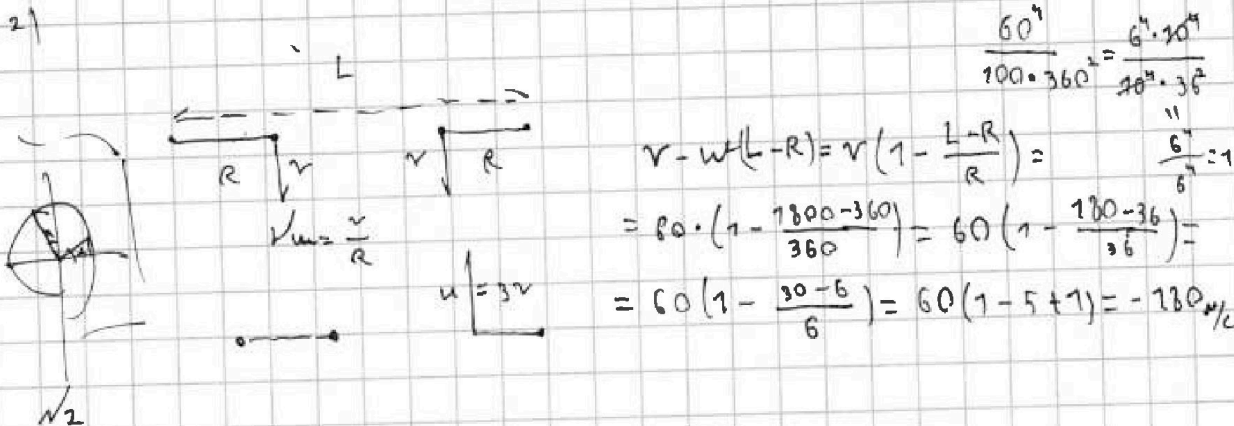 2)
L
R
v
v
R
Vω = v/R
u = 3v
60⁴/(100·360²) = 6⁴·10⁴/(10⁴·36²)
"
6⁴/6⁴ = 1
v - ω(L-R) = v(1 - (L-R)/R) =
= 60·(1 - (1800-360)/360) = 60(1 - (180-36)/36) =
= 60(1 - (30-6)/6) = 60(1-5+1) = -180 м/с
N2